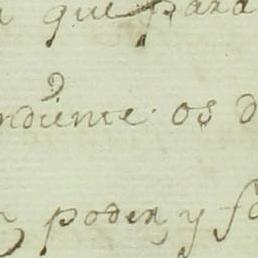 que para
ndiente os d
poder, y fo